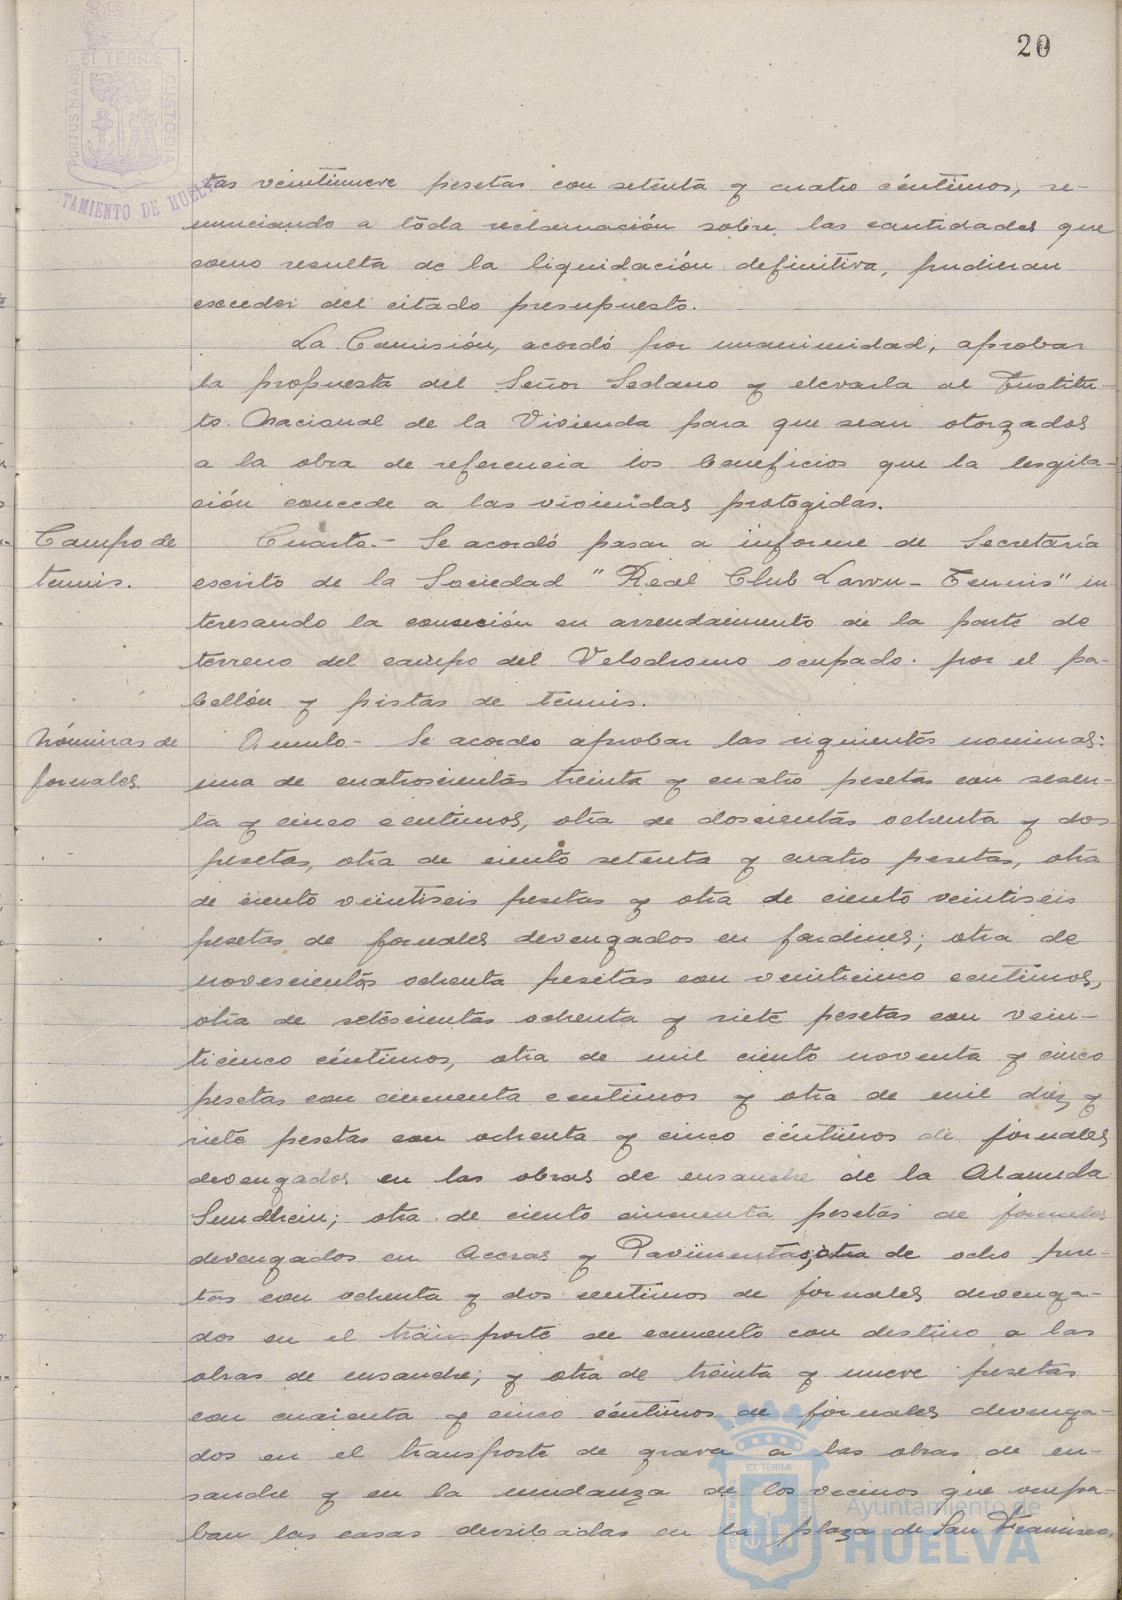 20
ET TERRÆ
PORTUS MARIS
CUSTODIA
TAMIENTO DE HUELVA
tas veintinueve pesetas con setenta y cuatro céntimos, re-
nunciando a toda reclamación sobre las cantidades que
como resulta de la liquidación definitiva, pudieran
exceder del citado presupuesto.
La Comisión, acordó por unanimidad, aprobar
la propuesta del Señor Sedano y elevarla al Institu-
to Nacional de la Vivienda para que sean otorgados
a la obra de referencia los beneficios que la lesgila-
ción concede a las viviendas protegidas.
Campo de
tennis.
Cuarto.- Se acordó pasar a informe de Secretaría
escrito de la Sociedad "Real Club Lawn-Tennis" in
teresando la concesión en arrendamiento de la parte de
terreno del campo del Velodromo ocupado por el pa-
bellón y pistas de tennis.
Nóminas de
jornales
Quinto- Se acordo aprobar las siguientes nominas:
una de cuatrocientas treinta y cuatro pesetas con sesen-
ta y cinco centimos, otra de doscientas ochenta y dos
pesetas, otra de ciento setenta y cuatro pesetas, otra
de ciento veintiseis pesetas y otra de ciento veintiseis
pesetas de jornales devengados en jardines; otra de
novescientas ochenta pesetas con veinticinco centimos,
otra de setescientas ochenta y siete pesetas con vein-
ticinco céntimos, otra de mil ciento noventa y cinco
pesetas con cincuenta centimos y otra de mil diez y
siete pesetas con ochenta y cinco céntimos de jornales
devengados en las obras de ensanche de la Alameda
Sundhein; otra de ciento cincuenta pesetas de jornales
devengados en Aceras y Pavimentos, otra de ocho pese-
tas con ochenta y dos centimos de jornales devenga-
dos en el transporte de cemento con destino a las
obras de ensanche; y otra de treinta y nueve pesetas
con cuarenta y cinco céntimos de jornales devenga-
dos en el transporte de grava a las obras de en-
sanche y en la mudanza de los vecinos que ocupa-
ban las casas derribadas en la plaza de San Francisco,
ET TERRÆ
Ayuntamiento de
HUELVA